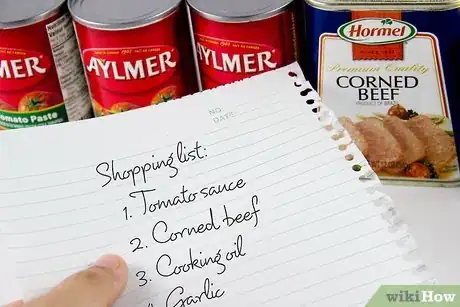 AYLMER
Tomato Paste
AYLMER
AYLMER
Hormel
Premium Quality
CORNED
BEEF
PRODUCT OF BRAZIL
NO.
DATE
Shopping list:
1. Tomato sauce
2. Corned beef
3. Cooking oil
Garlic
wikiHow